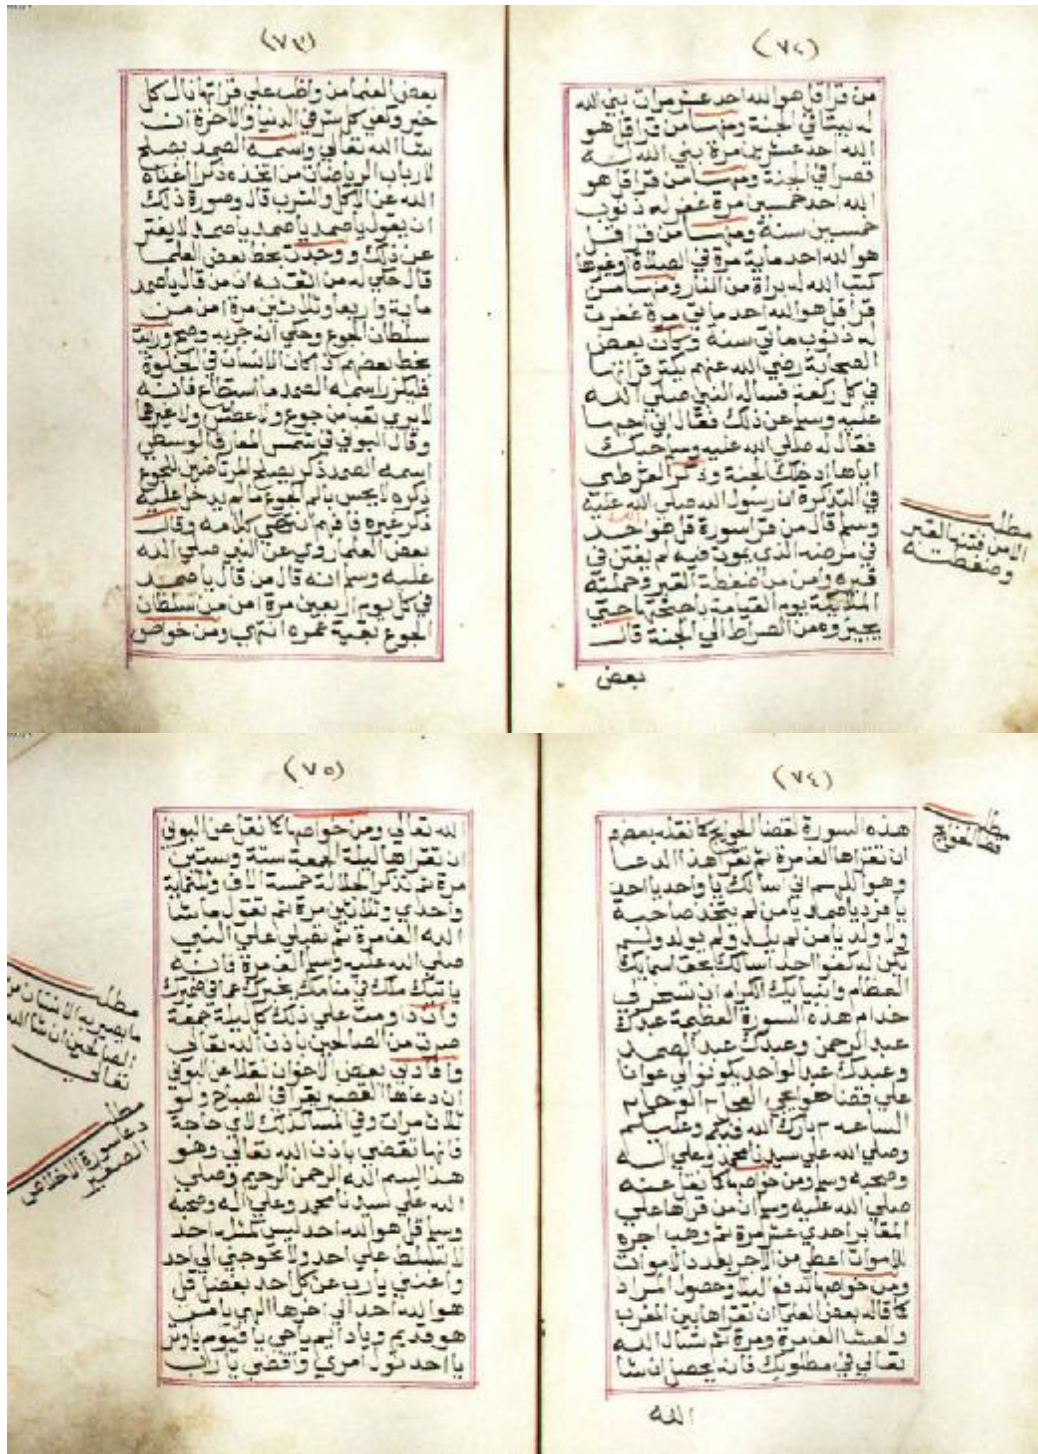 (٧٢)
من قرا قل هو الله احد عشر مرات بني الله
له بيتا في الجنة ومنها من قرا قل هو
الله احد عشرين مرة بني الله له
قصرا في الجنة ومنها من قرا قل هو
الله احد خمسين مرة غفر له ذنوب
خمسين سنة ومنها من قرا قل
هو الله احد ماية مرة في الصلاة او غيرها
كتب الله له براة من النار ومنها من
قرا قل هو الله احد ماتي مرة غفرت
له ذنوب ماتي سنة وكان بعض
الصحابة رضي الله عنهم يكثر قراتها
في كل ركعة فساله النبي صلي الله
عليه وسلم عن ذلك فقال اني احبها
فقال له صلي الله عليه وسلم حبك
اياها ادخلك الجنة وذكر القرطبي
في التذكرة ان رسول الله صلي الله عليه
وسلم قال من قرا سورة قل هو الله احد
في مرضه الذي يموت فيه لم يفتن في
قبره وامن من ضغطة القبر وحملته
الملايكة يوم القيامة باجنحتها حتي
يجيزوه من الصراط الي الجنة قال
بعض
مطلب
الامن فتنة القبر
وضغطته
(٧٣)
بعض العلما من واظب علي قراتها نال كل
خير وكفي كل شر في الدنيا والاخرة ان
شا الله تعالي واسمه الصمد يصلح
لارباب الرياضات من اتخذه ذكرا اغناه
الله عن الاكل والشرب قال وصورة ذلك
ان يقول يا صمد يا صمد يا صمد لا يفتر
عن ذلك ووجدت بخط بعض العلما
قال حكي له من اثق به ان من قال يا صمد
ماية واربعا وثلاثين مرة امن من
سلطان الجوع وحكي انه جربه وصح ورايت
بخط بعضهم اذا كان الانسان في الخلوة
فليكثر اسمه الصمد ما استطاع فانه
لا يري تعبا من جوع ولا عطش ولا غيرهما
وقال البوني في شمس المعارف الوسطي
اسمه الصمد ذكر يصلح للمرتاضين للجوع
ذكره لا يحس بالم الجوع ما لم يدخل عليه
ذكر غيره فافهم انتهي كلامه وقال
بعض العلما روي عن النبي صلي الله
عليه وسلم انه قال من قال يا صمد
في كل يوم اربعين مرة امن من سلطان
الجوع بقية عمره انتهي ومن خواص
(٧٤)
هذه السورة لقضا الحوايج كما نقله بعضهم
ان تقراها الف مرة ثم تقرا هذا الدعا
وهو اللهم اني اسالك يا واحد يا احد
يا فرد يا صمد يا من لم يتخذ صاحبة
ولا ولد يا من لم يلد ولم يولد ولم
يكن له كفوا احد اسالك بحق اسمايك
العظام وانبيايك الكرام ان تسخر لي
خدام هذه السورة العظيمة عبدك
عبد الرحمن وعبدك عبد الصمد
وعبدك عبد الواحد يكونوا لي عوانا
علي قضا حوايجي العجل الوحا
الساعه بارك الله فيكم وعليكم
وصلي الله علي سيدنا محمد وعلي اله
وصحبه وسلم ومن خواصها كما نقل عنه
صلي الله عليه وسلم ان من قراها علي
المقابر احدي عشر مرة ثم وهب اجره
للاموات اعطي من الاجر بعدد الاموات
ومن خواصها لدفع البلا وحصول المراد
كما قاله بعض العلما ان تقراها بين المغرب
والعشا الف مرة ومرة ثم تسال الله
تعالي في مطلوبك فانه يحصل ان شا
الله
مطلب
قضا الحوايج
(٧٥)
الله تعالي ومن خواصها كما نقل عن البوني
ان تقراها ليلة الجمعة ستة وستين
مرة ثم تذكر الجلالة خمسة الاف وثلثماية
واحدي وثلاثين مرة ثم تقول ما شا
الله الف مرة ثم تصلي علي النبي
صلي الله عليه وسلم الف مرة فانه
ياتيك ملك في منامك يخبرك عما في ضميرك
وان داومت علي ذلك كل ليلة جمعة
صرت من الصالحين باذن الله تعالي
وافادني بعض الاخوان نقلا عن البوني
ان دعاها القصير يقرا في الصباح ولو
ثلاث مرات وفي المسا كذلك لاي حاجة
فانها تقضي باذن الله تعالي وهو
هذا بسم الله الرحمن الرحيم وصلي
الله علي سيدنا محمد وعلي اله وصحبه
وسلم قل هو الله احد ليس كمثله احد
لا تسلط علي احد ولا تحوجني الي احد
واغنني يا رب عن كل احد بفضل قل
هو الله احد الي اخرها الهي يا من
هو قديم ويا دايم يا حي يا قيوم يا وتر
يا احد تول امري واقضي يا رب
مطلب
ما يصير به الانسان من
الصالحين ان شا الله
تعالي
مطلب
دعا سورة الاخلاص
الصغير